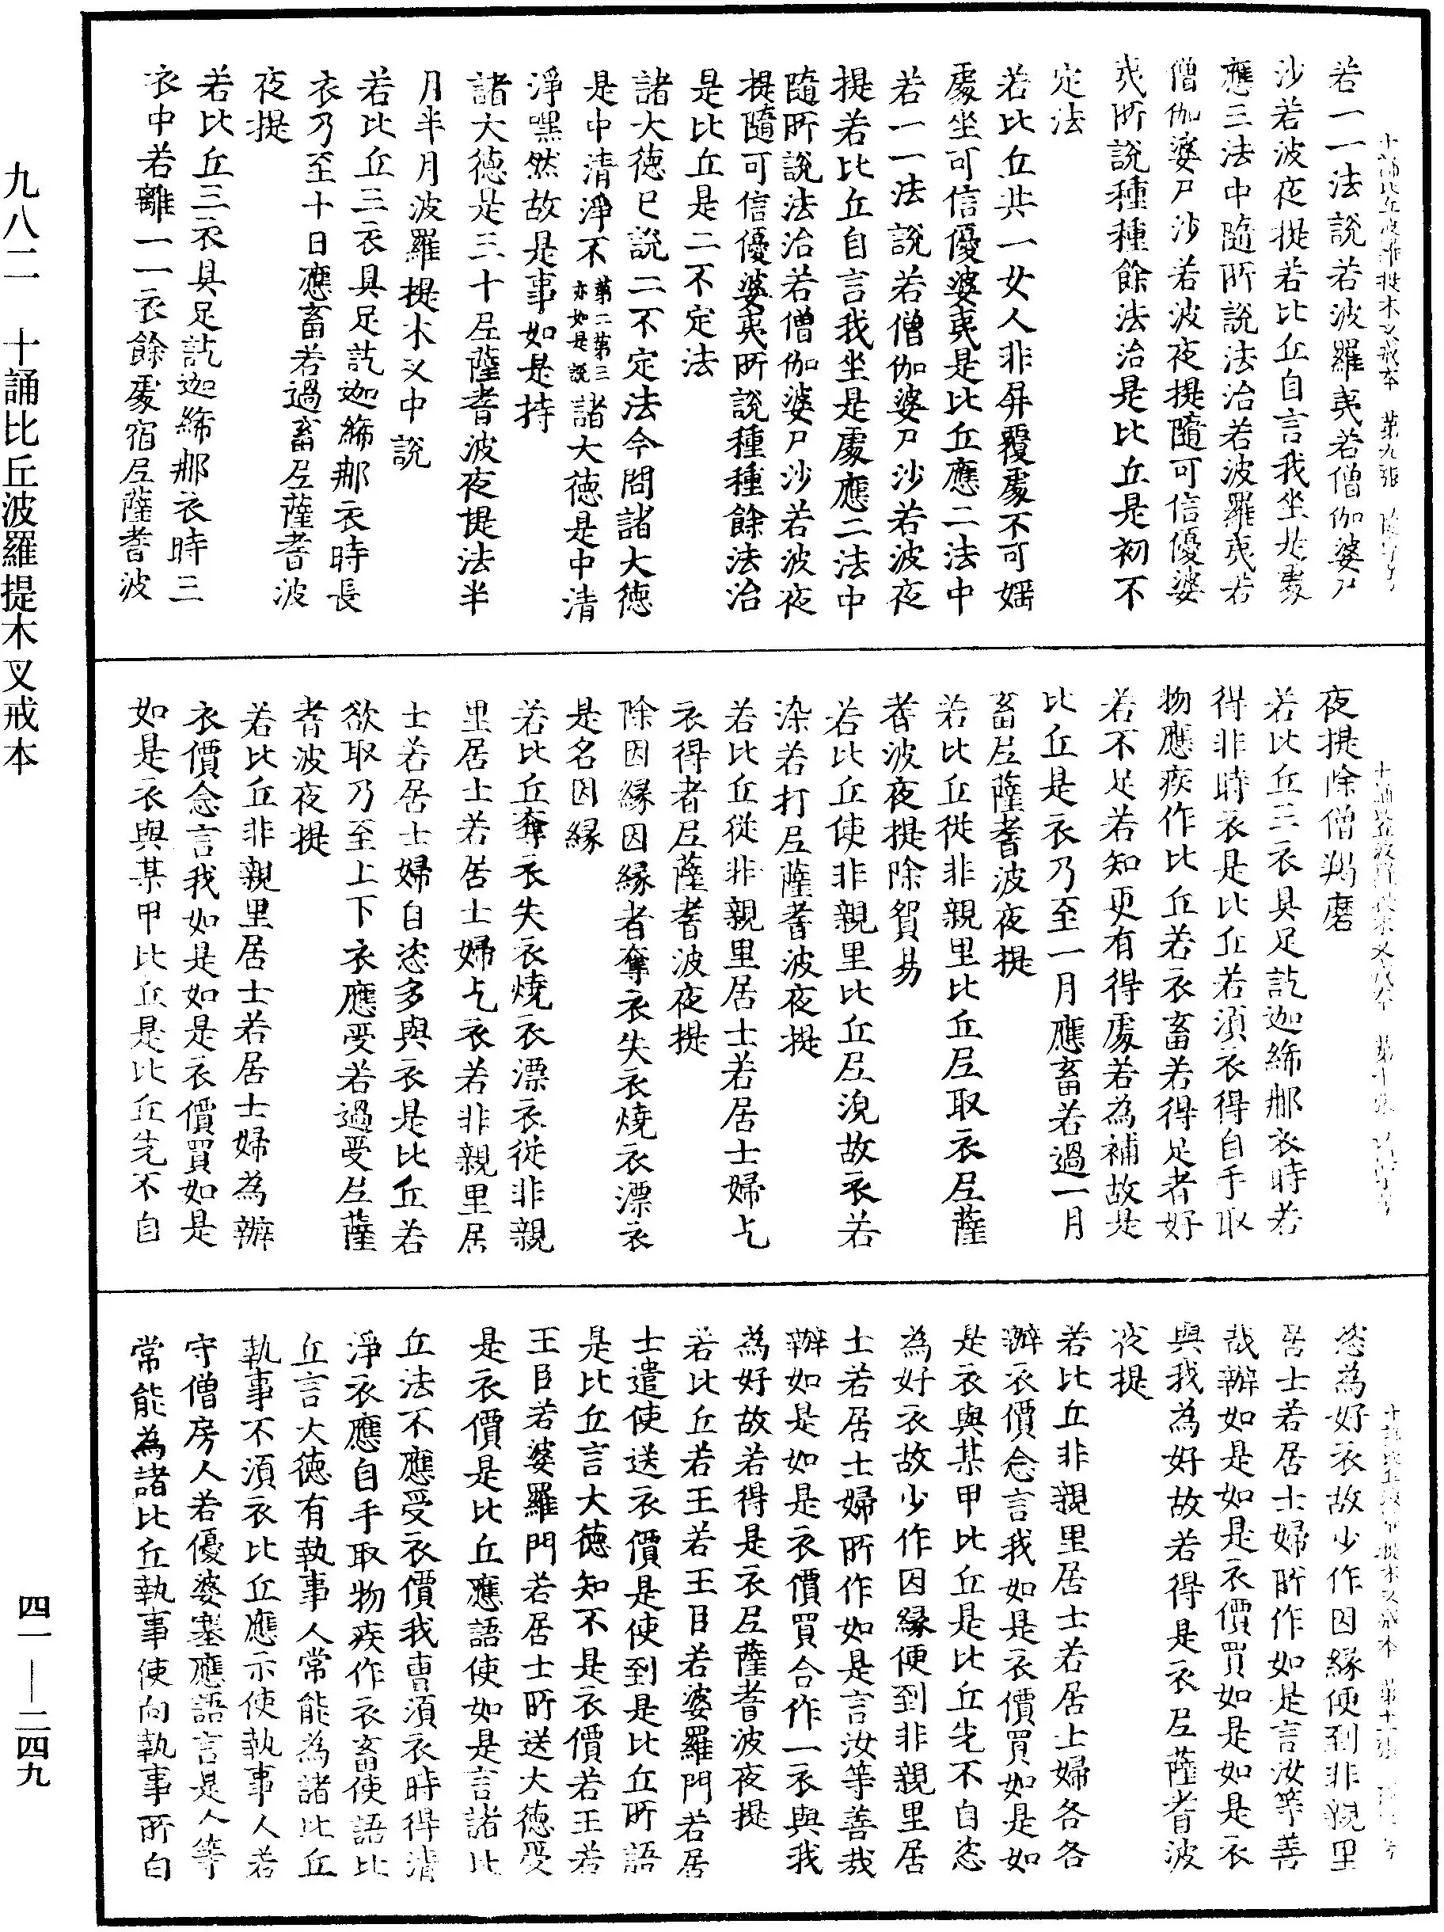 若一一法說若波羅夷若僧伽婆尸
沙若波夜提若比丘自言我坐是處
應三法中隨所說法治若波羅夷若
僧伽婆尸沙若波夜提隨可信優婆
夷所說種種餘法治是比丘是初不
定法
若比丘共一女人非屏覆處不可婬
處坐可信優婆夷是比丘應二法中
若一一法說若僧伽婆尸沙若波夜
提若比丘自言我坐是處應二法中
隨所說法治若僧伽婆尸沙若波夜
提隨可信優婆夷所說種種餘法治
是比丘是二不定法
諸大德已說二不定法今問諸大德
是中清淨不第二第三亦如是說諸大德是中清
淨嘿然故是事如是持
諸大德是三十尼薩耆波夜提法半
月半月波羅提木叉中說
若比丘三衣具足訖迦絺那衣時長
衣乃至十日應畜若過畜尼薩耆波
夜提
若比丘三衣具足訖迦絺那衣時三
衣中若離一一衣餘處宿尼薩耆波
夜提除僧羯磨
若比丘三衣具足訖迦絺那衣時若
得非時衣是比丘若須衣得自手取
物應疾作比丘若衣畜若得足者好
若不足若知更有得處若為補故是
比丘是衣乃至一月應畜若過一月
畜尼薩耆波夜提
若比丘從非親里比丘尼取衣尼薩
耆波夜提除貿易
若比丘使非親里比丘尼浣故衣若
染若打尼薩耆波夜提
若比丘從非親里居士若居士婦乞
衣得者尼薩耆波夜提
除因緣因緣者奪衣失衣燒衣漂衣
是名因緣
若比丘奪衣失衣燒衣漂衣從非親
里居士若居士婦乞衣若非親里居
士若居士婦自恣多與衣是比丘若
欲取乃至上下衣應受若過受尼薩
耆波夜提
若比丘非親里居士若居士婦為辦
衣價念言我如是如是衣價買如是
如是衣與某甲比丘是比丘先不自
恣為好衣故少作因緣便到非親里
居士若居士婦所作如是言汝等善
哉辦如是如是衣價買如是如是衣
與我為好故若得是衣尼薩耆波
夜提
若比丘非親里居士若居士婦各各
辦衣價念言我如是衣價買如是如
是衣與某甲比丘是比丘先不自恣
為好衣故少作因緣便到非親里居
士若居士婦所作如是言汝等善哉
辦如是如是衣價買合作一衣與我
為好故若得是衣尼薩耆波夜提
若比丘若王若王臣若婆羅門若居
士遣使送衣價是使到是比丘所語
是比丘言大德知不是衣價若王若
王臣若婆羅門若居士所送大德受
是衣價是比丘應語使如是言諸比
丘法不應受衣價我曹須衣時得清
淨衣應自手取物疾作衣畜使語比
丘言大德有執事人常能為諸比丘
執事不須衣比丘應示使執事人若
守僧房人若優婆塞應語言是人等
常能為諸比丘執事使向執事所白
九八二　十誦比丘波羅提木叉戒本
四一—二四九